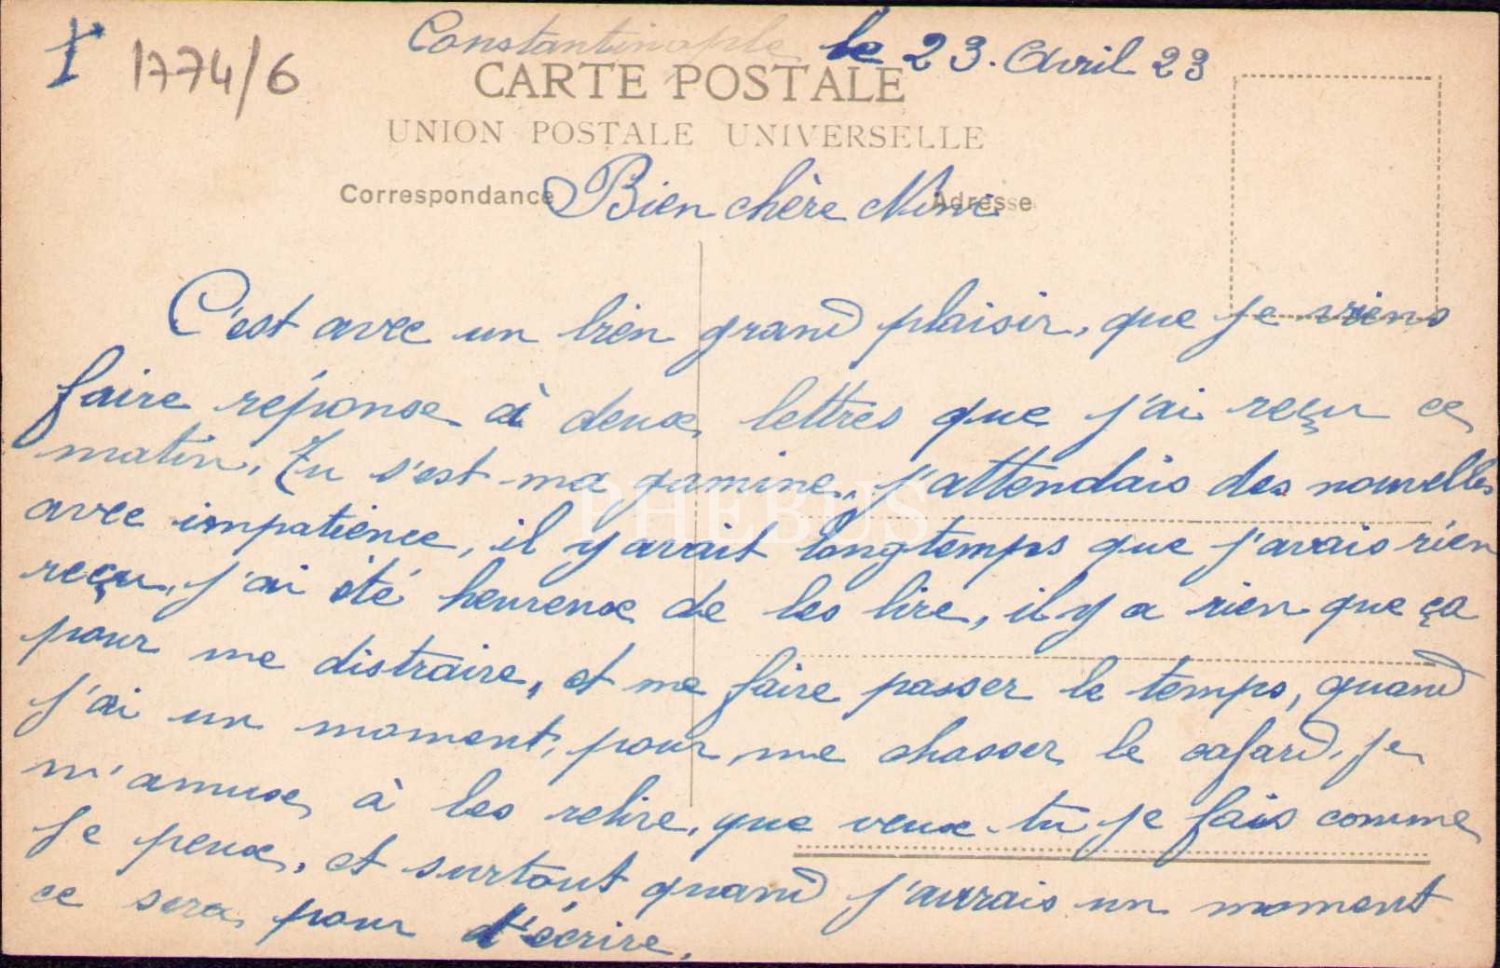 I
1774/6
Constantinople le 23. Avril 23
CARTE POSTALE
UNION POSTALE UNIVERSELLE
Correspondance
Adresse
Bien chère Ninie
C'est avec un bien grand plaisir, que je viens
faire réponse à deux lettres que j'ai reçu ce
matin. Tu s'est ma gamine, j'attendais des nouvelles
avec impatience, il y avait longtemps que j'avais rien
reçu, j'ai été heureux de les lire, il y a rien que ça
pour me distraire, et me faire passer le temps, quand
j'ai un moment, pour me chasser le cafard, je
m'amuse à les relire, que veux-tu je fais comme
je peux, et surtout quand j'aurais un moment
ce sera pour t'écrire.
PHEBUS